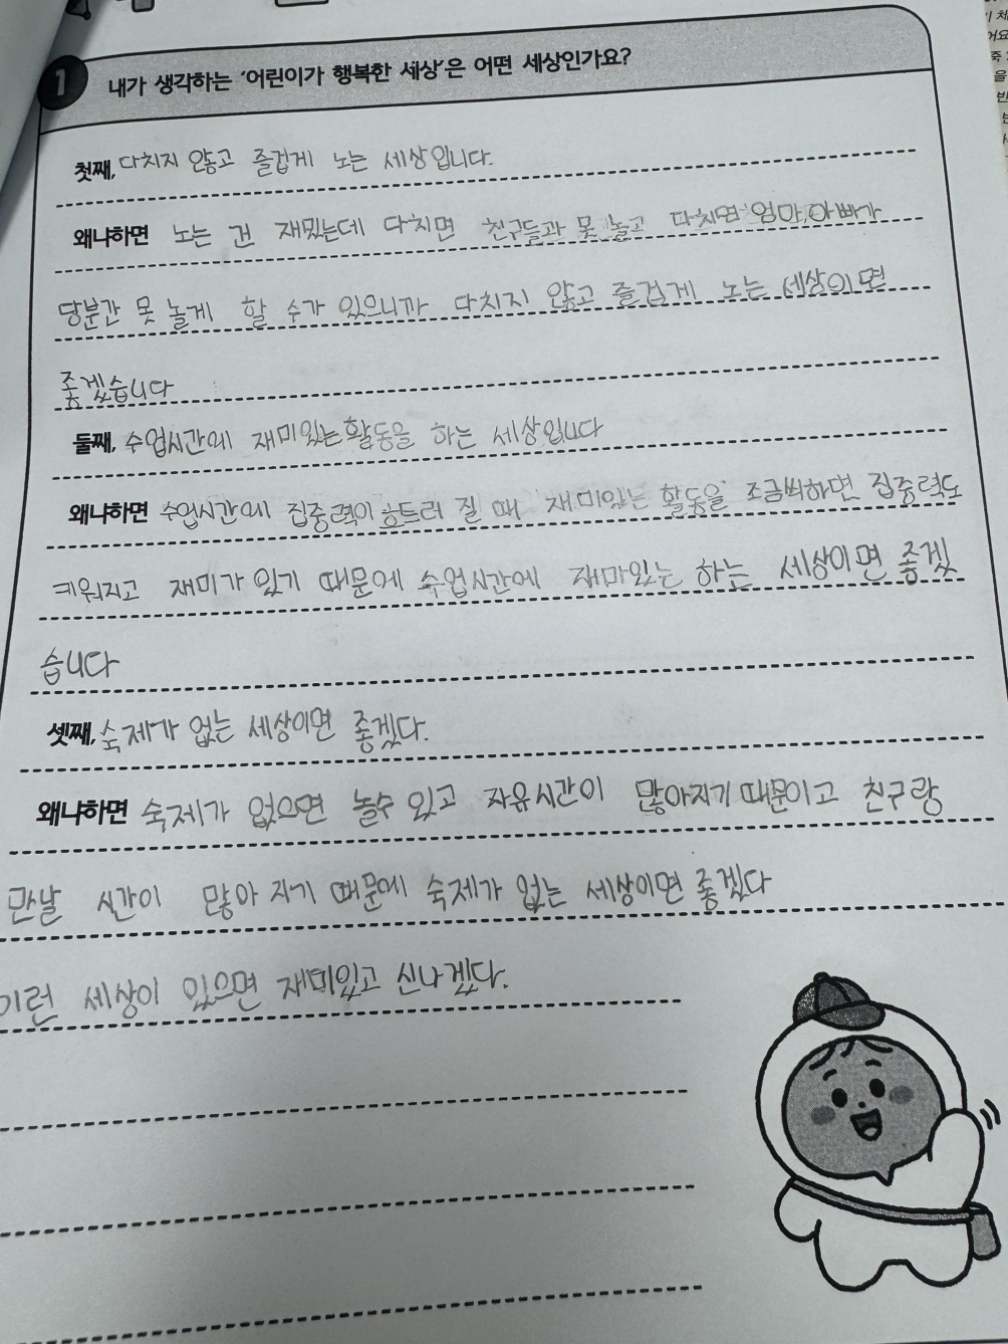 1 내가 생각하는 '어린이가 행복한 세상'은 어떤 세상인가요?
첫째, 다치지 않고 즐겁게 노는 세상입니다.
왜냐하면 노는 건 재밌는데 다치면 친구들과 못 놀고 다치면 엄마,아빠가
당분간 못 놀게 할 수가 있으니까 다치지 않고 즐겁게 노는 세상이면
좋겠습니다
둘째, 수업시간에 재미있는 활동을 하는 세상입니다
왜냐하면 수업시간에 집중력이 흐트러 질 때 재미있는 활동을 조금씩하면 집중력도
키워지고 재미가 있기 때문에 수업시간에 재마있는 하는 세상이면 좋겠
습니다
셋째, 숙제가 없는 세상이면 좋겠다.
왜냐하면 숙제가 없으면 놀수 있고 자유시간이 많아지기 때문이고 친구랑
만날 시간이 많아 지기 때문에 숙제가 없는 세상이면 좋겠다
이런 세상이 있으면 재미있고 신나겠다.